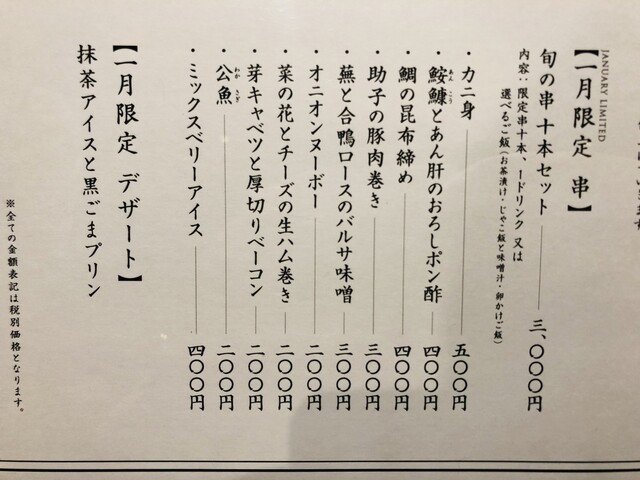 【一月限定 串】
JANUARY LIMITED
旬の串十本セット 三、〇〇〇円
内容：限定串十本、一ドリンク 又は
選べるご飯（お茶漬け・じゃこ飯と味噌汁・卵かけご飯）
・カニ身 五〇〇円
・鮟鱇とあん肝のおろしポン酢 四〇〇円
あん こう
・鯛の昆布締め 四〇〇円
・助子の豚肉巻き 三〇〇円
・蕪と合鴨ロースのバルサ味噌 三〇〇円
・オニオンヌーボー 二〇〇円
・菜の花とチーズの生ハム巻き 二〇〇円
・芽キャベツと厚切りベーコン 二〇〇円
・公魚 二〇〇円
わか さぎ
・ミックスベリーアイス 四〇〇円
【一月限定 デザート】
抹茶アイスと黒ごまプリン
※全ての金額表記は税別価格となります。